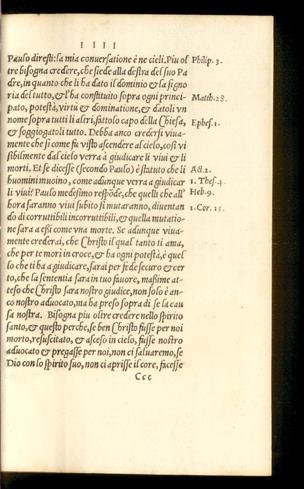 IIII
Pauso diresti: la mia conuersatione è ne cieli. Piu ol
tre bisogna credere, che siede alla destra del suo Pa
dre, in quanto che li ha dato il dominio & la signo
ria del tutto, & l'ha constituito sopra ogni princi-
pato, potestà, virtù & dominatione, & datoli vn
nome sopra tutti li altri, fattolo capo della Chiesa,
& soggiogatoli tutto. Debba anco credersi viua-
mente che si come fu visto ascendere al cielo, così vi
sibilmente dal cielo verra à giudicare li viui & li
morti. Et se dicesse (secondo Paulo) è statuto che li
huomini muoino, come adunque verra a giudicar
li viui? Paulo medesimo respōde, che quelli che all'
hora saranno viui subito si mutaranno, diuentan
do di corruttibili incorruttibili, & quella mutatio-
ne sara a essi come vna morte. Se adunque viua-
mente crederai, che Christo il qual tanto ti ama,
che per te morì in croce, & ha ogni potestà, è quel
lo che ti a giudicare, sarai per fede securo & cer
to, che la sententia sara in tuo fauore, maßime at-
teso che Christo sara nostro giudice, non solo è an-
co nostro aduocato, ma ha preso sopra di se la cau
sa nostra. Bisogna piu oltre credere nello spirito
santo, & questo perche, se ben Christo fusse per noi
morto, resuscitato, & asceso in cielo, fusse nostro
aduocato & pregasse per noi, non ci saluaremo, se
Dio con lo spirito suo, non ci aprisse il core, facesse
Ccc
Philip. 3.
Matth. 28.
Ephes. 1.
Act. 2.
1. Thes. 4.
Heb. 9.
1. Cor. 15.